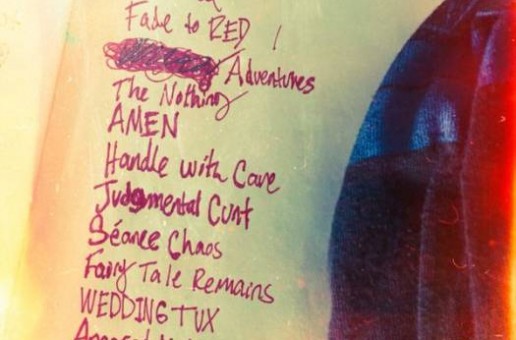 Fade to RED !
Adventures
The Nothing
AMEN
Handle with Care
Judgmental Cunt
Séance Chaos
Fairy Tale Remains
WEDDING TUX